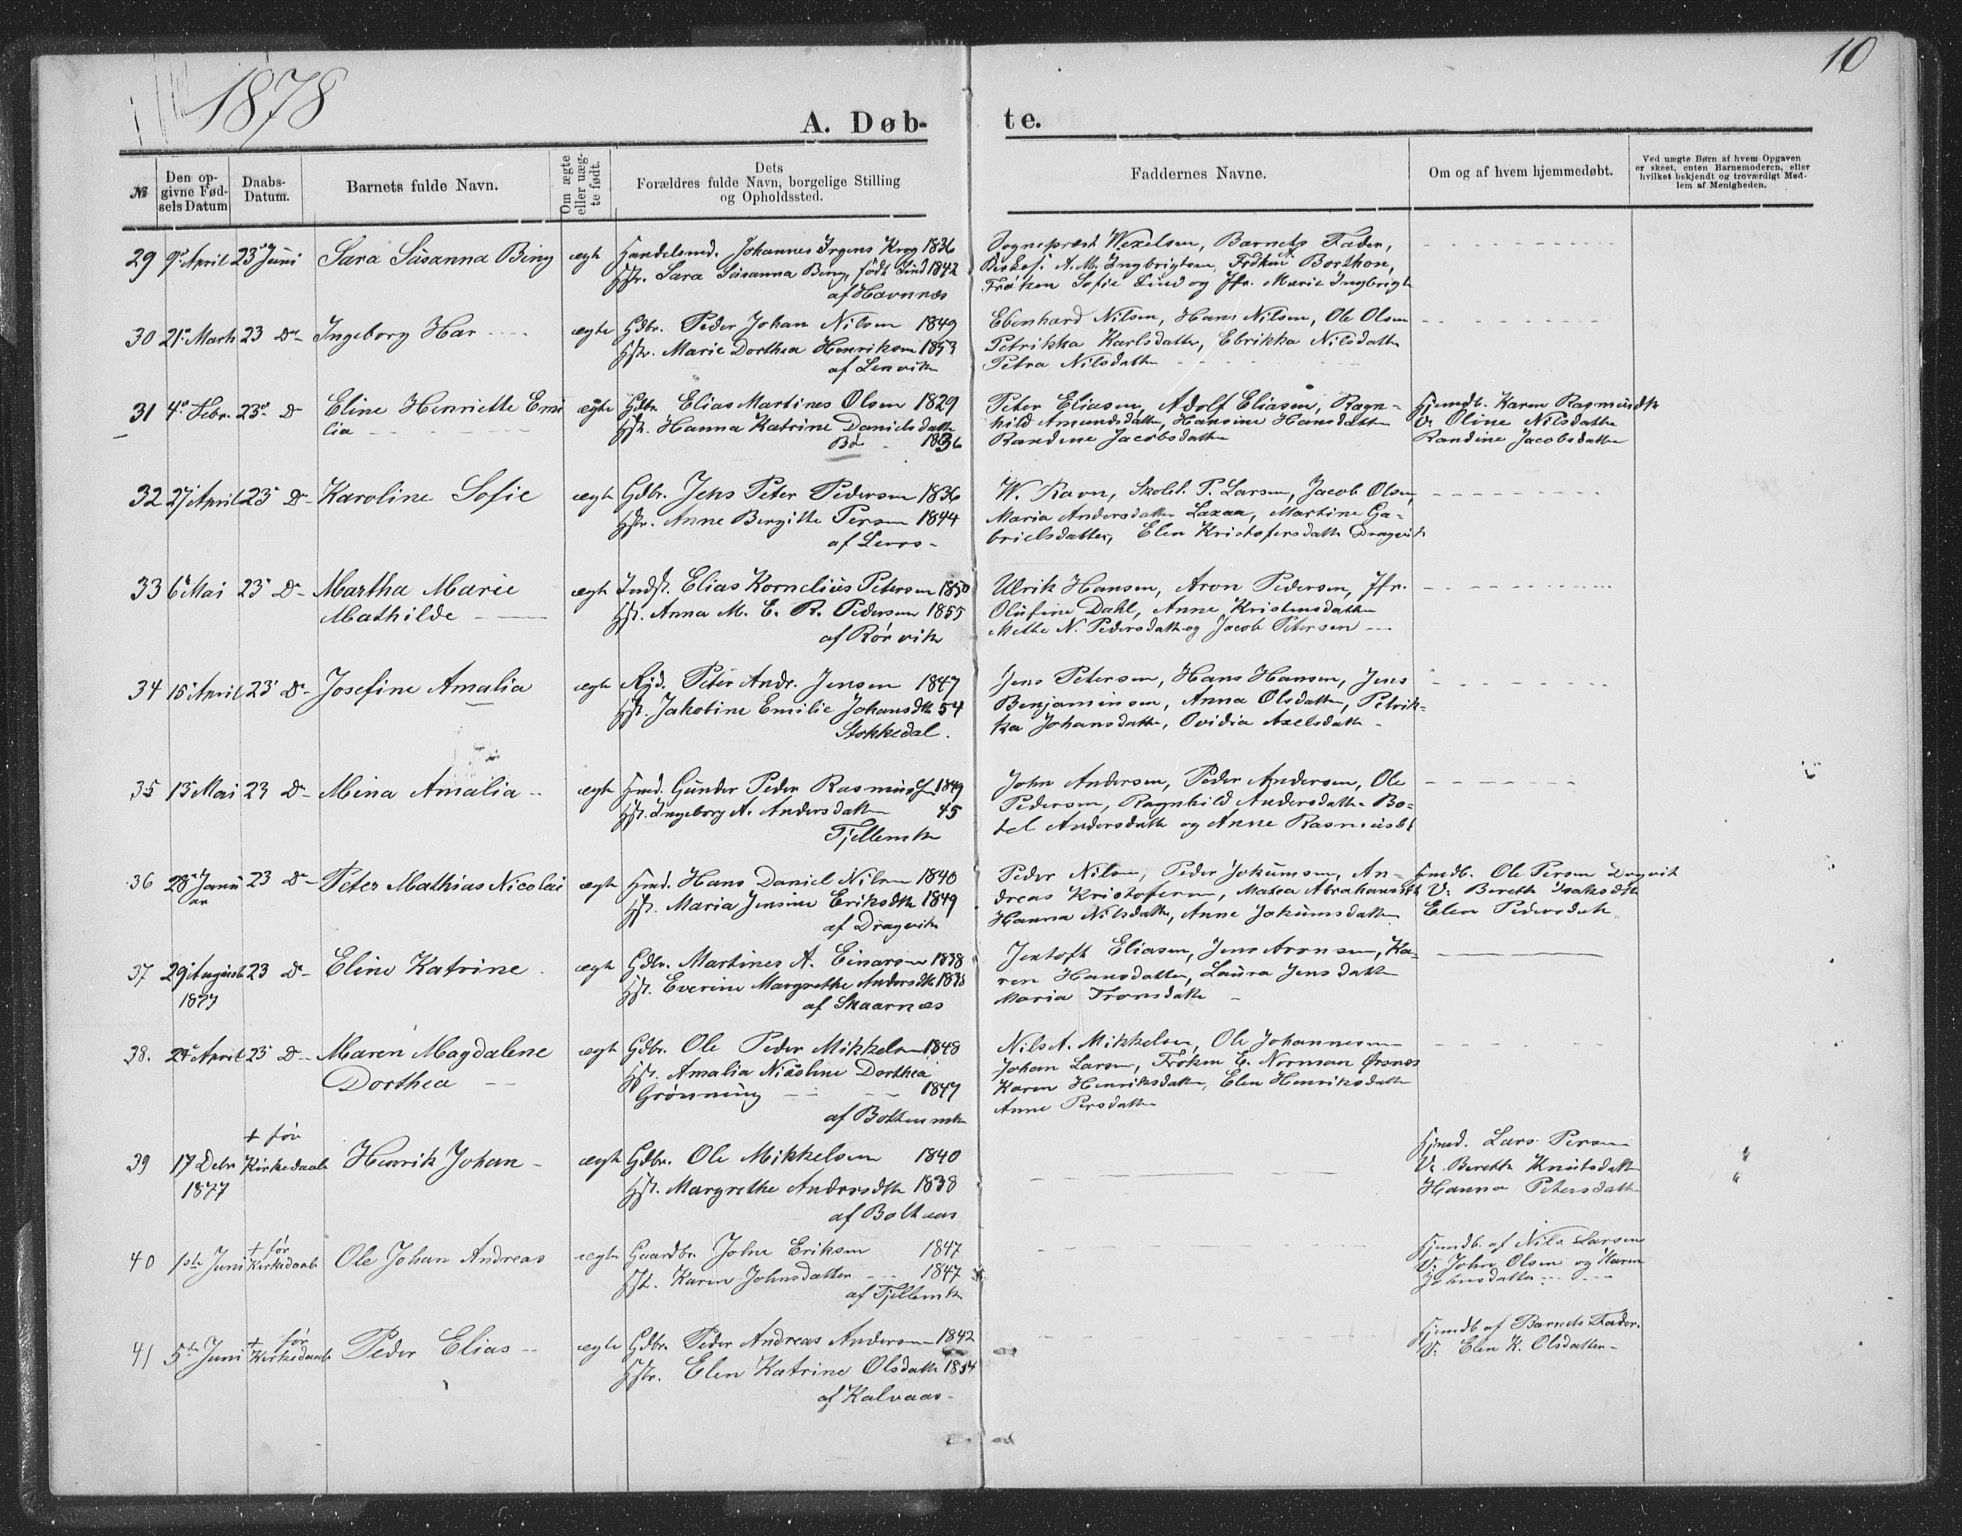 1878
10
A. Døb-
te.
№
Den op-
givne Fød-
sels Datum
Daabs-
Datum.
Barnets fulde Navn.
Om ægte
eller uæg-
te født.
Dets
Forældres fulde Navn, borgelige Stilling
og Opholdssted.
Faddernes Navne.
Om og af hvem hjemmedøbt.
Ved uægte Børn af hvem Opgaven
er skeet, enten Barnemoderen, eller
hvilket bekjendt og troværdigt Med-
lem af Menigheden.
29 9 April 23 Juni Sara Susanna Bing ægte Handelsmd. Johannes Irgens Krog 1836
Hst. Sara Susanna Bing, født Lund 1842
af Havnnæs
Sogneprest Wexelsen, Barnets Fader,
A. M. Ingbrigtsen, Frøken Borthon,
Frøken Sofie Lund og Jfr. Marie Ingbrigts
30 21 Marts 23 Do Ingeborg Har ægte Gdbr. Peder Johan Nilsen 1849
Hst. Marie Dorthea Henriksen 1853
af Lenvik
Ebenhard Nilsen, Hans Nilsen, Ole Olsen
Petrikka Karlsdatter, Ebrikka Nilsdatter
Petra Nilsdatter
31 4 Febr. 23 Do Eline Henriette Emi
lia
ægte Gdbr. Elias Martines Olsen 1829
Hst. Hanna Katrine Danielsdatter
Bø 1836
Peter Eliasen, Adolf Eliasen, Ragn-
hild Amundsdatter, Hansine Hansdatter
Randine Jacobsdatter
Hjemdb. Karen Rasmusdtr
V. Oline Nilsdatter
Randine Jacobsdatter
32 27 April 23 Do Karoline Sofie ægte Gdbr. Jens Peter Pedersen 1836
Hst. Anne Bergitte Persen 1844
W. Ravn, Skolel. P. Larsen, Jacob Olsen,
Maria Andersdatter Laxaa, Martine Ga-
brielsdatter, Elen Kristofersdatter Dragvik
33 6 Mai 23 Do Martha Marie
Mathilde
ægte Indst. Elias Kornelius Petersen 1850
Hst. Anna M. E. R. Pedersen 1855
af Rørvik
Ulrik Hansen, Aron Pedersen, Jfr.
Olufine Dahl, Anne Kristensdatter
Mette N. Pedersdatter og Jacob Petersen
34 15 April 23 Do Josefine Amalia ægte Peter Andr. Jensen 1847
Hst. Jakobine Emilie Johansdtr 54
Stokkedal.
Jens Petersen, Hans Hansen, Jens
Benjaminsen, Anna Olsdatter, Petrik-
ka Johansdatter, Ovidia Axelsdatter
35 13 Mai 23 Do Mina Amalia ægte Hmd. Gunder Peder Rasmussen 1849
Hst. Ingeborg A. Andersdatter 45
Tjellemk
John Andersen, Peder Andersen, Ole
Pedersen, Ragnhild Andersdatter Bo-
tel Andersdatter og Anne Rasmusdt
36 28 Janu
ar
23 Do Peter Mathias Nicolai ægte Hmd. Hans Daniel Nilsen 1840
Hst. Maria Jensine Eriksdtr 1849
af Dragvik
Peder Nilsen, Peder Jokumsen, An-
dreas Kristofersen, Matea Abrahamsdtr
Hanna Nilsdatter, Anne Jokumsdatter
Hjmdb. Ole Persen Dragvik
V. Bereth Isaksdtr
Elen Pedersdatr
37 29 August 23 Do Eline Katrine ægte Gdbr. Martines A. Einarsen 1838
1877
Hst. Everine Margrethe Andersdtr 1838
af Skaarnæs
Jentoft Eliasen, Jens Aronsen, Ka-
ren Hansdatter, Laura Jensdatter
Maria Tronsdatter
38. 24 April 23 Do Maren Magdalene
Dorthea
ægte Gdbr. Ole Peder Mikkelsen 1848
Hst. Amalia Nicoline Dorthea
Grønning 1847
Nils A. Mikkelsen, Ole Johannesen
Johan Larsen, Frøken E. Norman Ørsnes
Karen Henriksdatter, Elen Henriksdatter
Anne Persdatter
39 17 Debr
1877
† før
Kirkedaab Henrik Johan ægte Gdbr. Ole Mikkelsen 1840
Hst. Margrethe Andersdtr 1838
af Boltaas
Hjmd. Lars Persen
V. Bereth Knutsdatter
Hanna Petersdatter
40 1ste Juni † før
Kirkedaab Ole Johan Andreas ægte Gaardbr. John Eriksen 1847
Hst. Karen Johnsdatter 1847
af Tjellemk
Hjemdb. af Nils Larsen
V. John Olsen og Karen
Johnsdatter
41 5te Juni † før
Kirkedaab Peder Elias ægte Gdbr. Peder Andreas Andersen 1842
Hst. Elen Katrine Olsdatter 1854
af Kalvaas
Hjemdb af Barnets Fader.
V. Elen K. Olsdatter